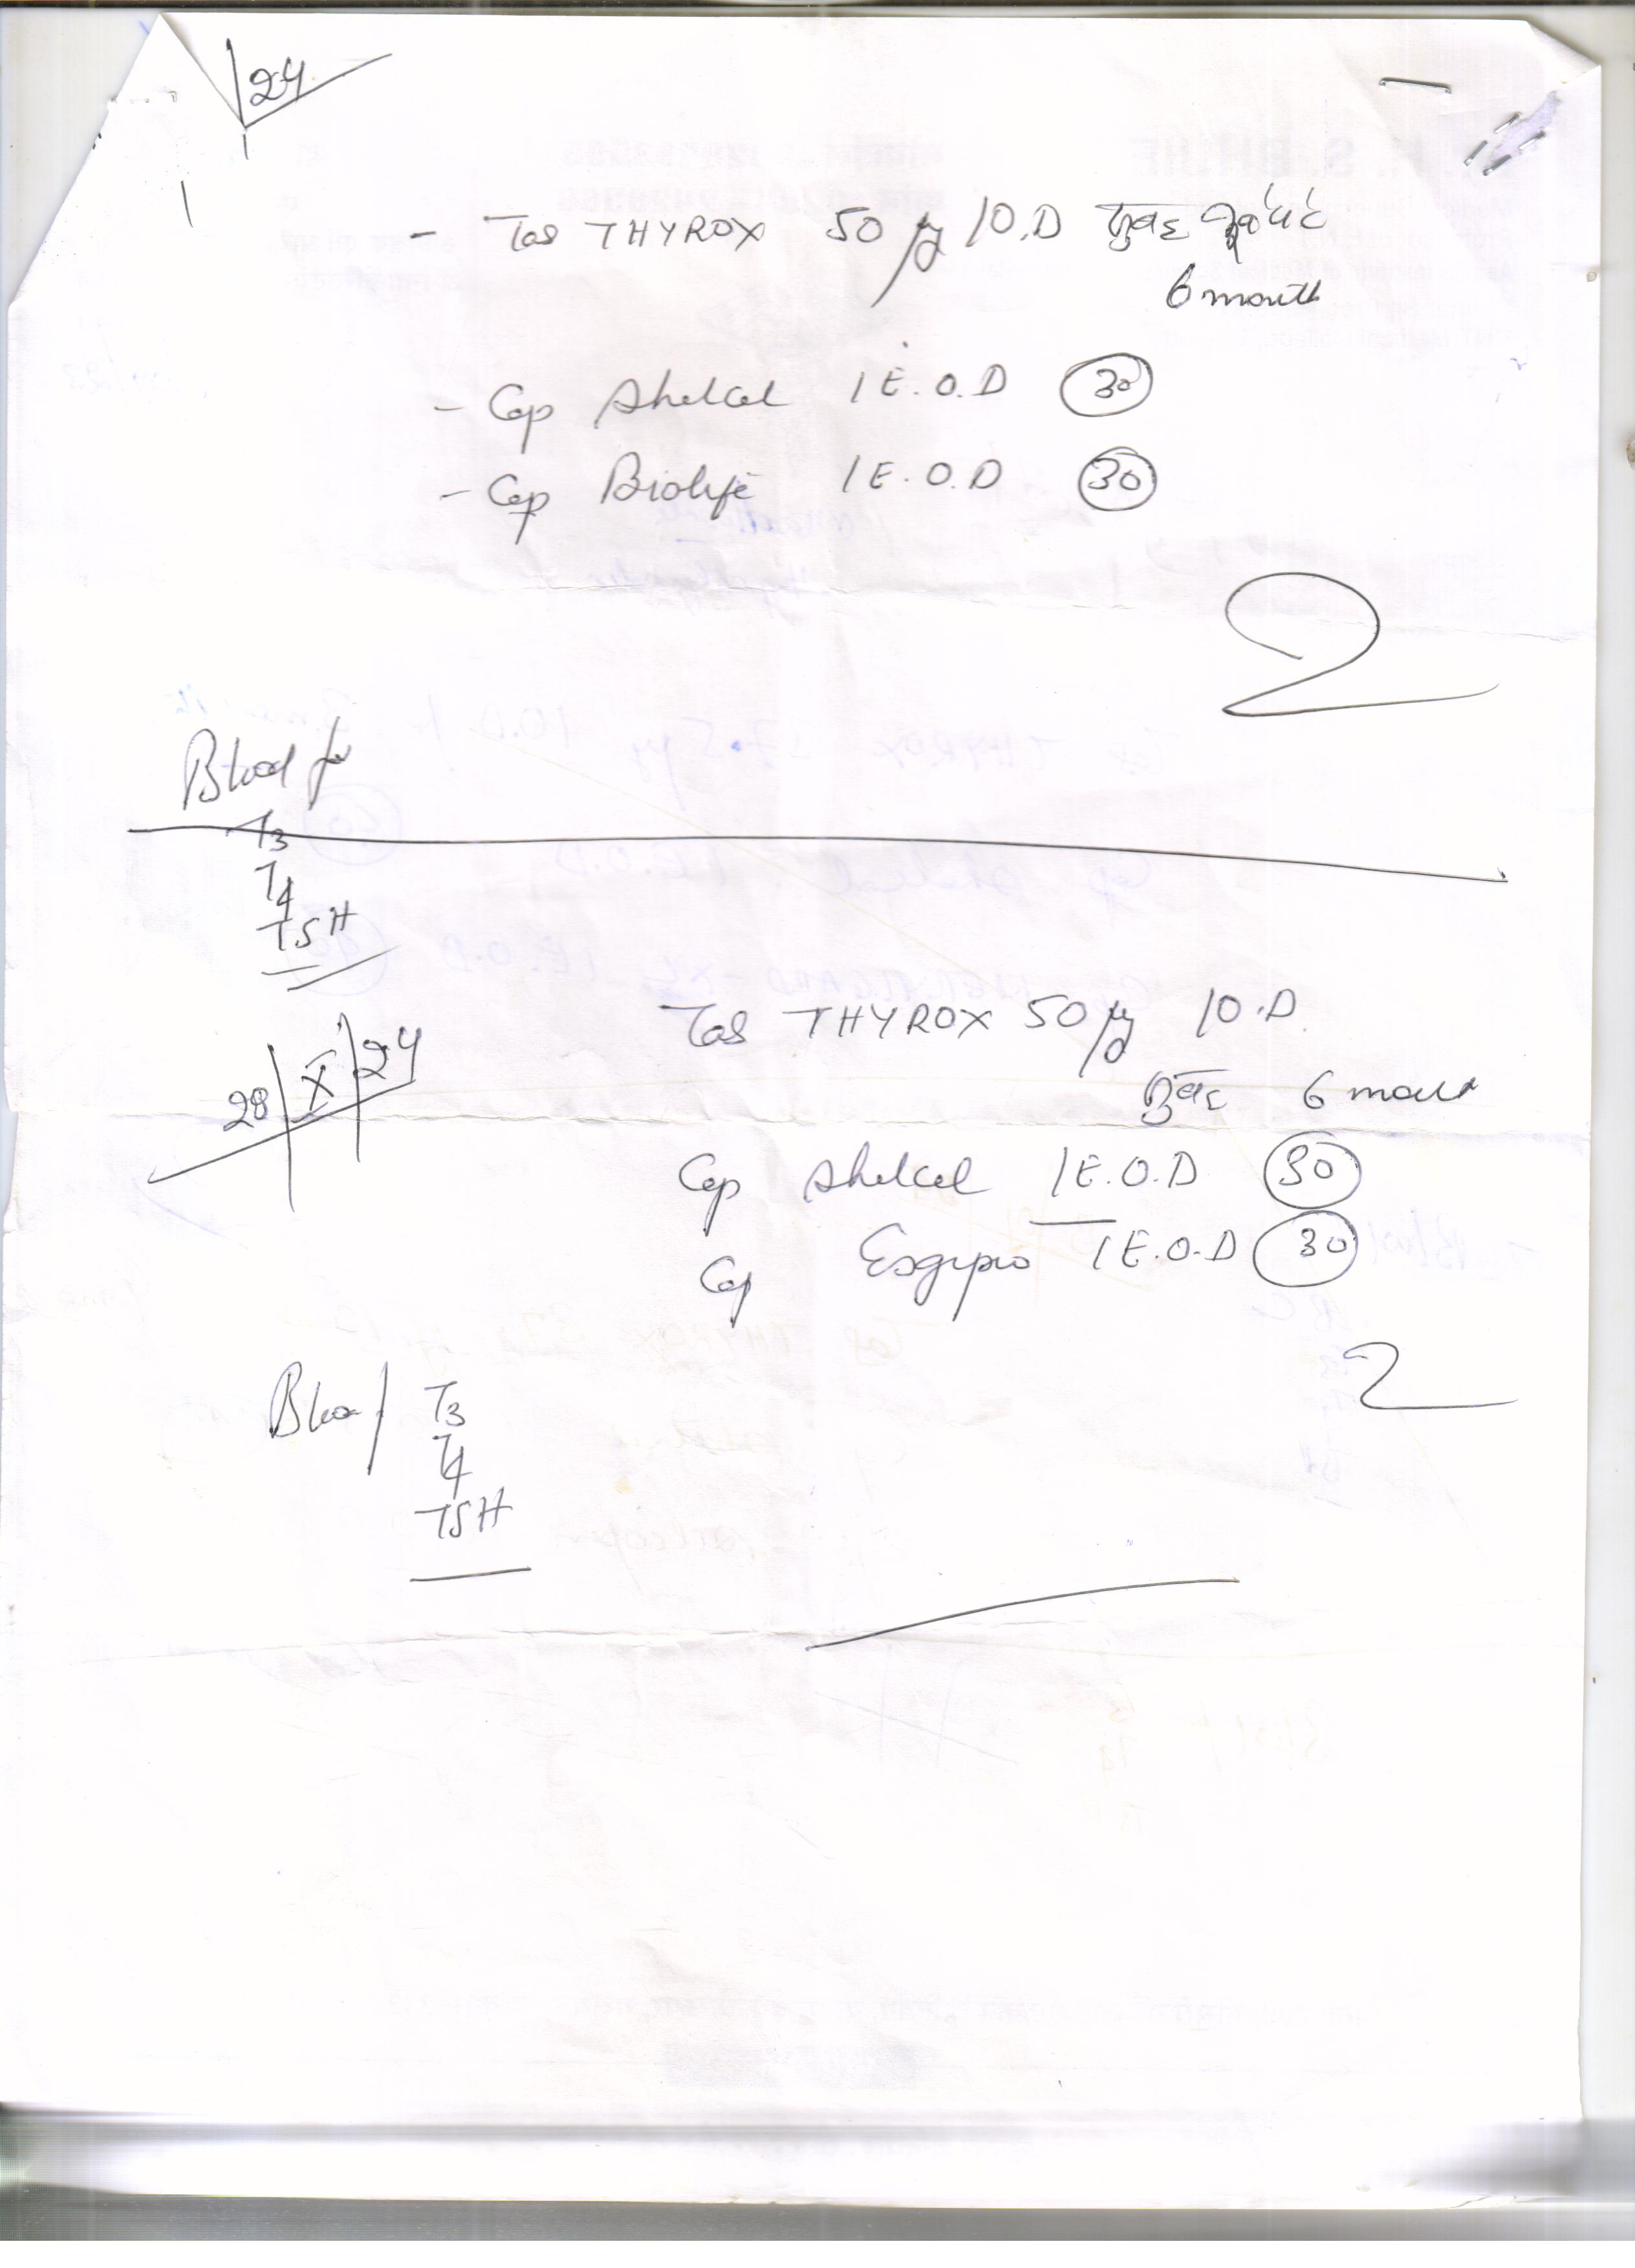 24
- Tab THYROX 50 µg 1 O.D सुबह
6 month
- Cap Shelcal 1 E.O.D 30
- Cap Biolife 1 E.O.D 30
Blood for
T3
T4
TSH
28/X/24
Tab THYROX 50 µg 1 O.D.
सुबह 6 month
Cap Shelcal 1 E.O.D 30
Cap Esgipro 1 E.O.D 30
Blood/ T3
T4
TSH